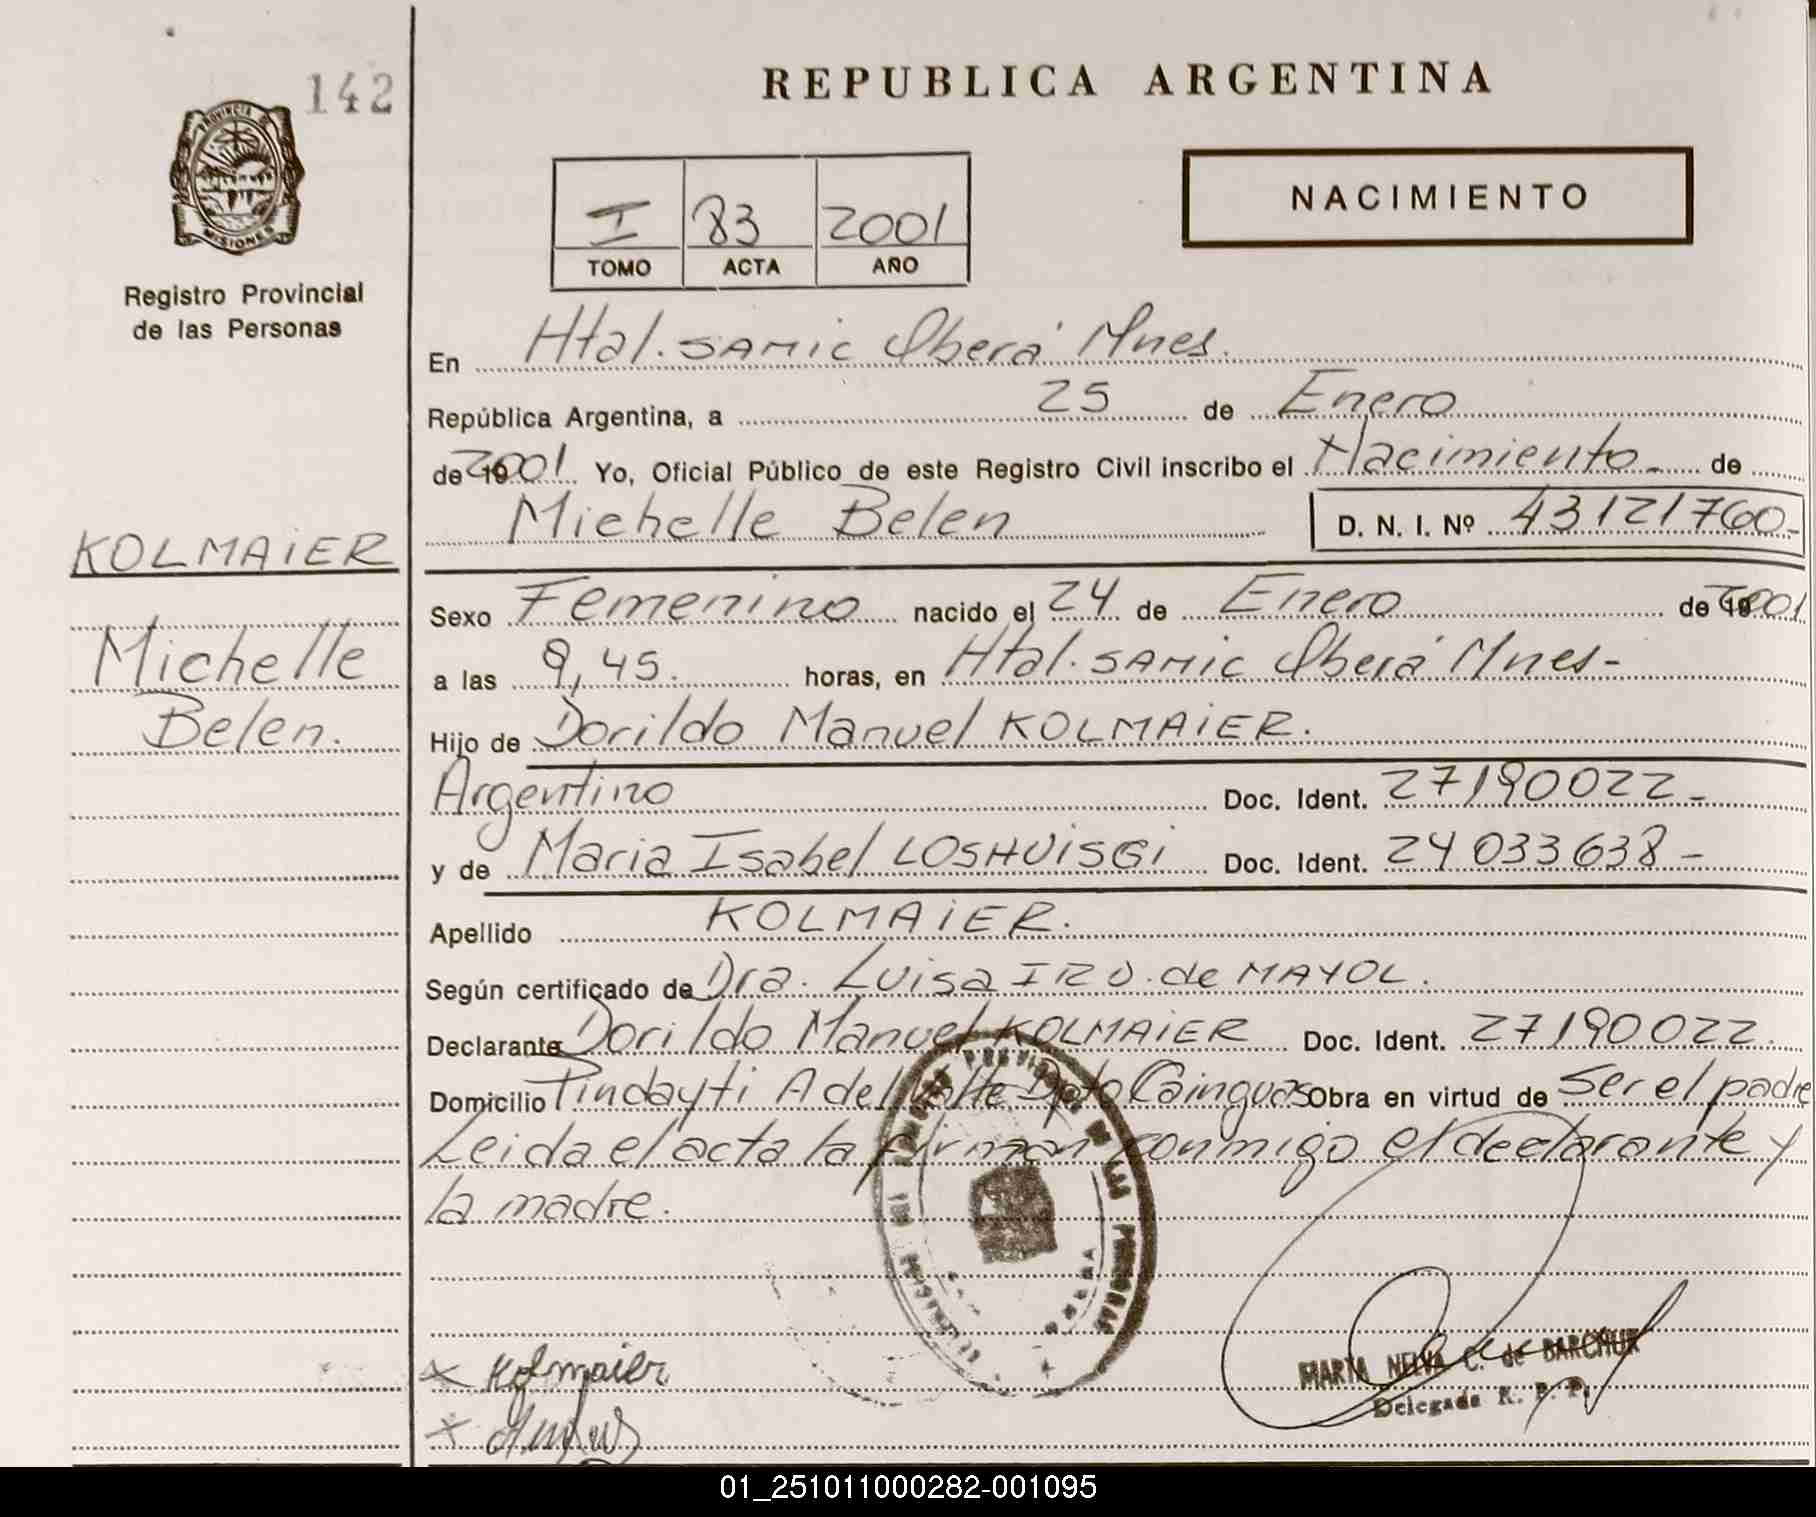 142
PROVINCIA DE
MISIONES
Registro Provincial
de las Personas
REPUBLICA ARGENTINA
I 83 2001
TOMO ACTA AÑO
NACIMIENTO
En Htal. SAMIC Oberá Mnes.
República Argentina, a 25 de Enero
de 2001 Yo, Oficial Público de este Registro Civil inscribo el Nacimiento de
Michelle Belen D. N. I. Nº 43121760-
KOLMAIER
Michelle
Belen.
Sexo Femenino nacido el 24 de Enero de 2001
a las 9,45. horas, en Htal. SAMIC Oberá Mnes-
Hijo de Dorildo Manuel KOLMAIER.
Argentino Doc. Ident. 27190022-
y de Maria Isabel LOSHUISGI Doc. Ident. 24033638-
Apellido KOLMAIER.
Según certificado de Dra. Luisa IRO. de MAYOL.
Declarante Dorildo Manuel KOLMAIER Doc. Ident. 27190022.
Domicilio Pindayti A del Valle Dpto Cainguas Obra en virtud de ser el padre
Leida el acta la firman conmigo el declarante y
la madre.
PROVINCIAL DE LAS PERSONAS
x Kolmaier
x
MARTA NELVA C. de BARCHUK
Delegada R. P. P.
01_251011000282-001095